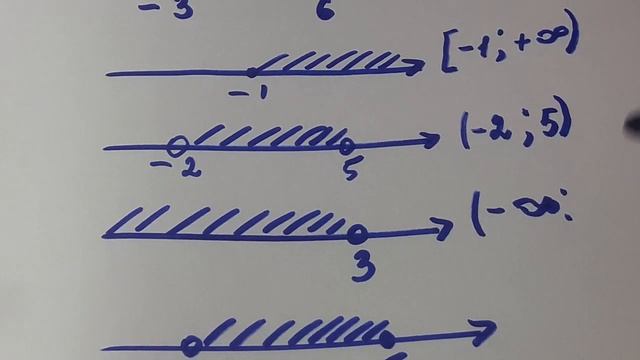 -3 6
[-1; +∞)
-1
(-2; 5)
-2 5
(-∞;
3